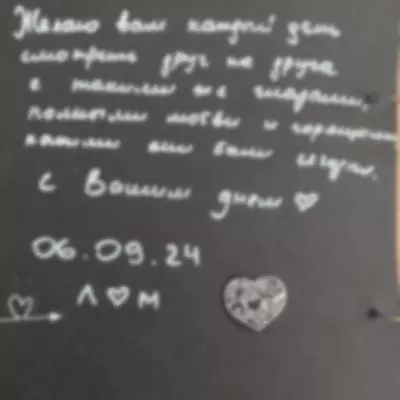 Желаю вам каждый день
смотреть друг на друга
с такими же глазами,
полными любви и
какими они были сегодня.
С Вашим днём ♡
06.09.24
Л ♡ М